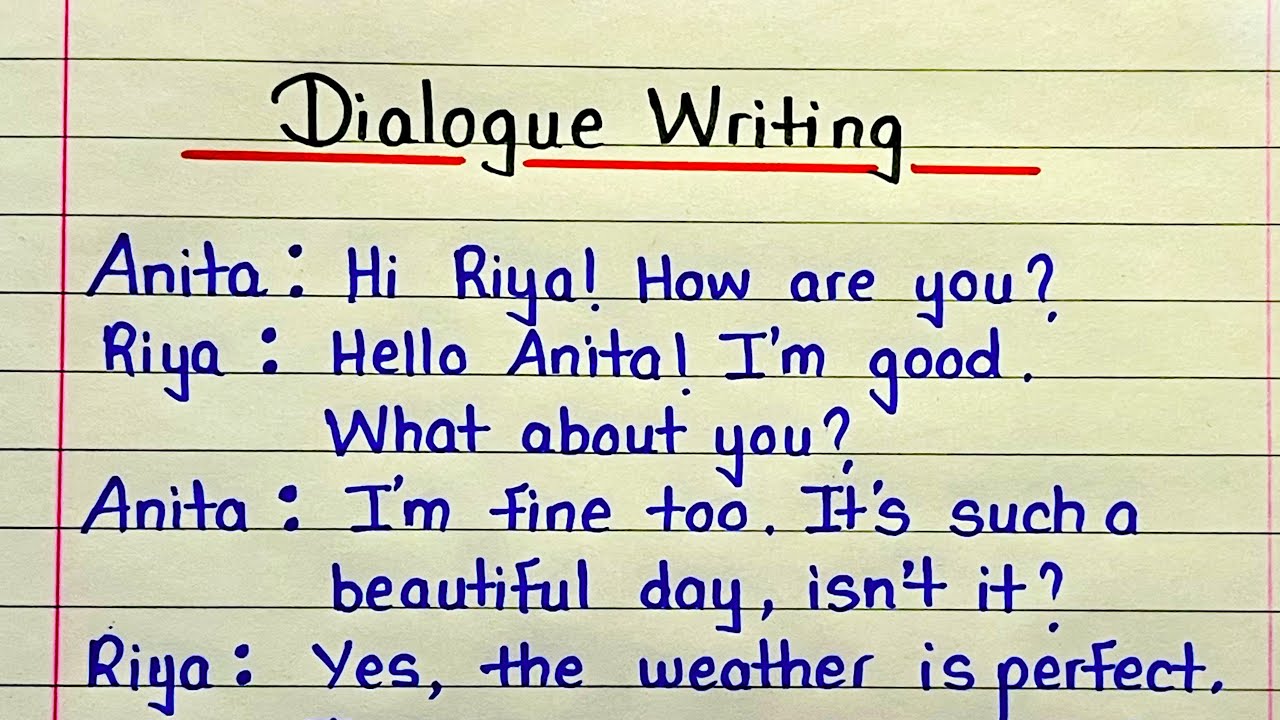 Dialogue Writing
Anita : Hi Riya! How are you?
Riya : Hello Anita! I'm good.
What about you?
Anita : I'm fine too. It's such a
beautiful day, isn't it?
Riya : Yes, the weather is perfect.